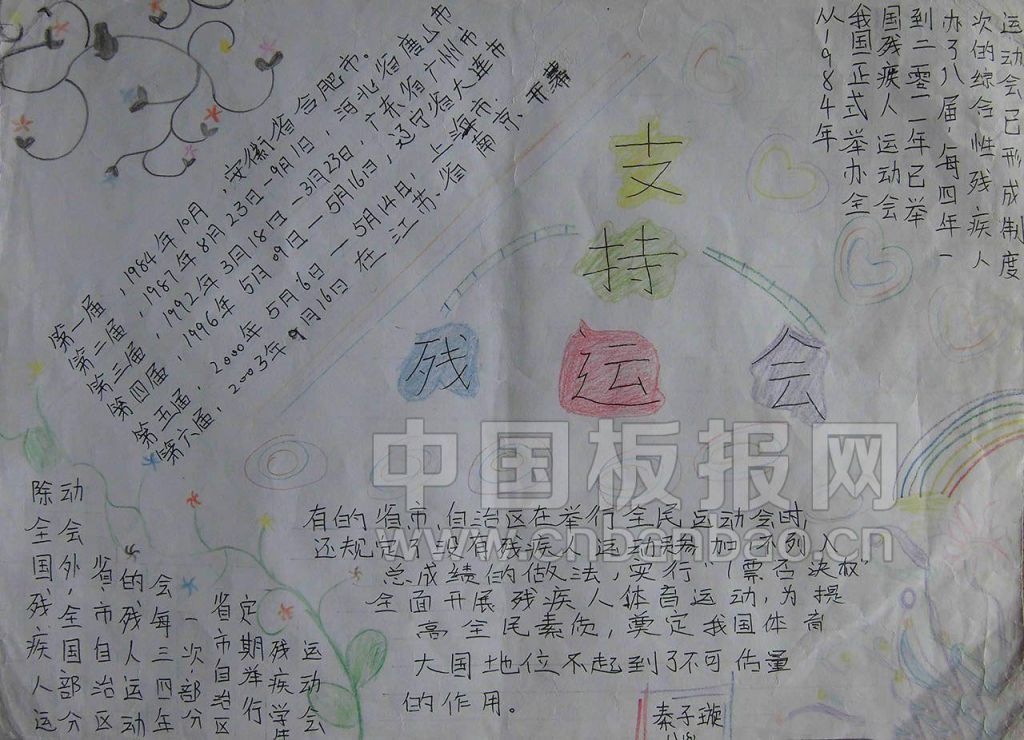 支持
残运会
从1984年
我国正式举办全
国残疾人运动会
到二零一一年已举
办了八届，每四年一
次的综合性残疾人
运动会已形成制度
第一届，1984年10月，安徽省合肥市。
第二届，1987年8月23日—9月1日，河北省唐山市
第三届，1992年3月18日—3月23日，广东省广州市
第四届，1996年5月09日—5月16日，辽宁省大连市
第五届，2000年5月6日—5月14日，上海市
第六届，2003年9月16日在江苏省南京开幕
除全国残疾人运
动会外，全国部分
省、市自治区
的残人运动
会每三四年
一次，部分
省市自治区
定期举行
残疾学生
运动会
有的省市，自治区在举行全民运动会时，
还规定了没有残疾人运动参加不列入
总成绩的做法，实行“1票否决权”
全面开展残疾人体育运动，为提
高全民素质，奠定我国体育
大国地位不起到了不可估量
的作用。
秦子璇
中国板报网
www.cnbanbao.cn